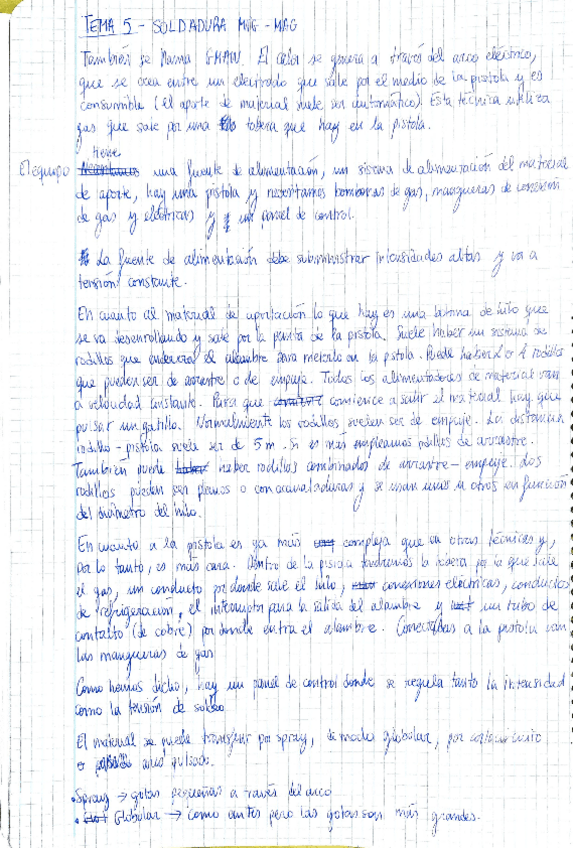 TEMA 5 - SOLDADURA MIG - MAG
También se llama GMAW. El calor se genera a través del arco eléctrico,
que se crea entre un electrodo que sale por el medio de la pistola y es
consumible (el aporte de material suele ser automático). Esta técnica utiliza
gas que sale por una tobera que hay en la pistola.
tiene
El equipo una fuente de alimentación, un sistema de alimentación del material
de aporte, hay una pistola y necesitamos bombonas de gas, mangueras de conexión
de gas y eléctricas y un panel de control.
La fuente de alimentación debe subministrar intensidades altas y va a
tensión constante.
En cuanto al material de aportación lo que hay es una bobina de hilo que
se va desenrollando y sale por la punta de la pistola. Suele haber un sistema de
rodillos que endereza el alambre para meterlo en la pistola. Puede haber 2 o 4 rodillos
que pueden ser de arrastre o de empuje. Todos los alimentadores de material van
a velocidad constante. Para que comience a salir el material hay que
pulsar un gatillo. Normalmente los rodillos suelen ser de empuje. La distancia
rodillo - pistola suele ser de 5 m. Si es más empleamos rodillos de arrastre.
También puede haber rodillos combinados de arrastre - empuje. Los
rodillos pueden ser planos o con acanaladuras y se usan unos u otros en función
del diámetro del hilo.
En cuanto a la pistola es ya más compleja que en otras técnicas y,
por lo tanto, es más cara. Dentro de la pistola tendremos la tobera por la que sale
el gas, un conducto por donde sale el hilo, conexiones eléctricas, conductos
de refrigeración, el interruptor para la salida del alambre y un tubo de
contacto (de cobre) por donde entra el alambre. Conectadas a la pistola van
las mangueras de gas
Como hemos dicho, hay un panel de control donde se regula tanto la intensidad
como la tensión de soldeo
El material se puede transferir por spray, de modo globular, por cortocircuito
o arco pulsado.
• Spray → gotas pequeñas a través del arco
• Globular → como antes pero las gotas son más grandes.